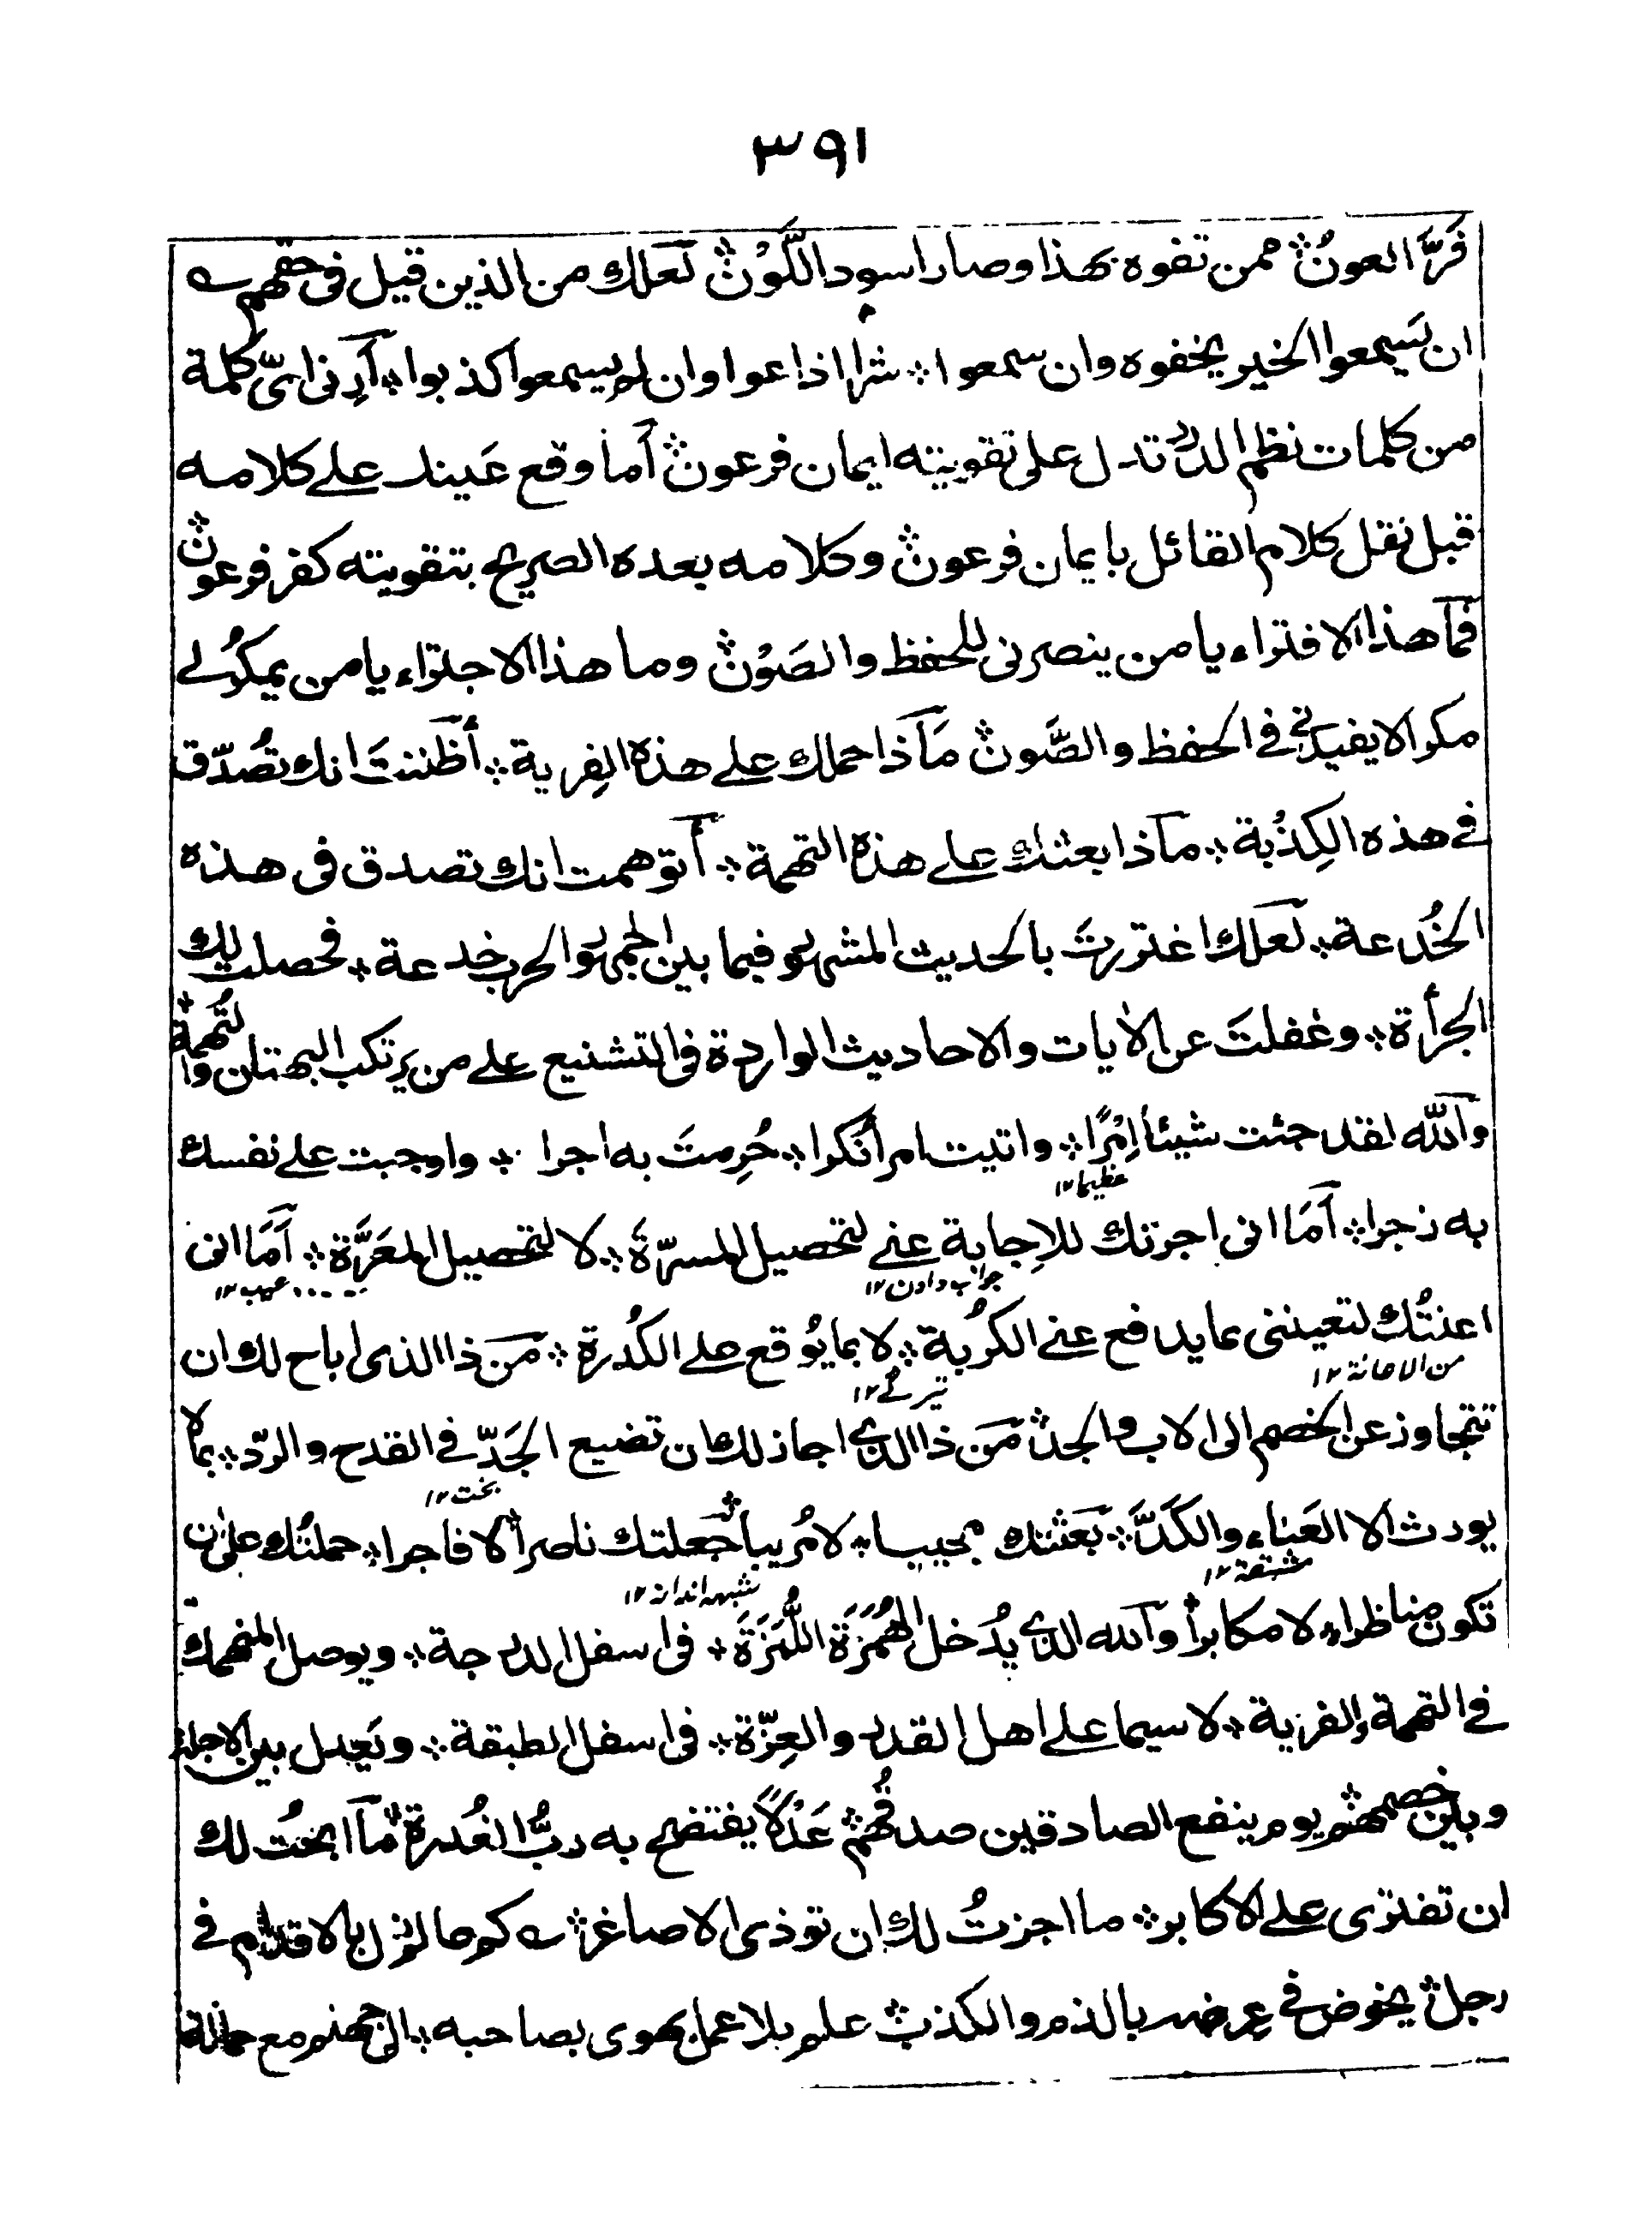 ٣٩١
فَرَّ العونُ ممن تفوه بهذا وصار اسود اللَّوْن لعلك من الذين قيل فى حقهم
ان يَسمعوا الخير يخفوه وان سمعوا شرا اذاعوا وان لم يسمعوا كذبوا أرِنى اىّ كلمة
من كلمات نظم الدرر تدل على تقويته ايمان فرعون أما وقع عَينك على كلامه
قبل نقل كلام القائل بايمان فرعون وكلامه بعده الصريح بتقويته كفر فرعون
فما هذا الافتراء يا من ينصرنى للحفظ والصَوْن وما هذا الاجتراء يا من يمكرُ لى
مكرا لا يفيدنى فى الحفظ والصَّون مَاذا حملك على هذه الفِرية أظننتَ انك تصُدّق
فى هذه الكِذْبة ماذا بعثك على هذه التهمة أتوهمت انك تصدق فى هذه
الخُدعة لعلك اغتررتَ بالحديث المشهور فيما بين الجمهور الحرب خدعة فحصلت لك
الجرأة وغفلتَ عن الأيات والاحاديث الواردة فى التشنيع على من يرتكب البهتان والتُهمة
والله لقد جئت شيئا اِمْرًا واتيت امرا نُكرا حُرِمتَ به اجرا واوجبت على نفسك
عظيما ١٢
به زجرا أمَا انى اجرتك للاِجابة عنى لتحصيل المسرّة لا لتحصيل المعَرَّة أمَا انى
جواب دادن ١٢ عيب ١٢
اعنتُك لتعيننى بما يدفع عنى الكُربة لا بما يُوقع على الكُدرة مَن ذا الذى اباح لك ان
من الاعانة ١٢ تيرگى ١٢
تتجاوز عن الخصم الى الاب والجد مَن ذا الذى اجاز لك ان تضيع الجَدّ فى القدح والردّ بما لا
بخت ١٢
يورث الا العَناء والكَدَّ بَعثتك مجيبا لا مُريبا جَعلتك ناصرا لا فاجرا حملتُك على ان
مشقة ١٢ شبهه اندازنده ١٢
تكون مناظرا لا مكابرا والله الذى يدُخل الهُمَزَة اللُّمَزَة فى اسفل الدرجة ويوصل المنهمك
فى التهمة والفرية لا سيما على اهل القدر والعِزّة فى اسفل الطبقة ويَعدل بين الاجلة
وبين خصمهم يوم ينفع الصادقين صدقُهم عَدْلاً يفتضح به ربُّ الغُدرة ما ابحتُ لك
ان تفترى على الاكابر ما اجزتُ لك ان توذى الاصاغر كم عالم زل بالاقلام فى
رجل يخوض فى عِرضه بالذم والكذب علم بلا عمل يهوى بصاحبه الى جهنم مع